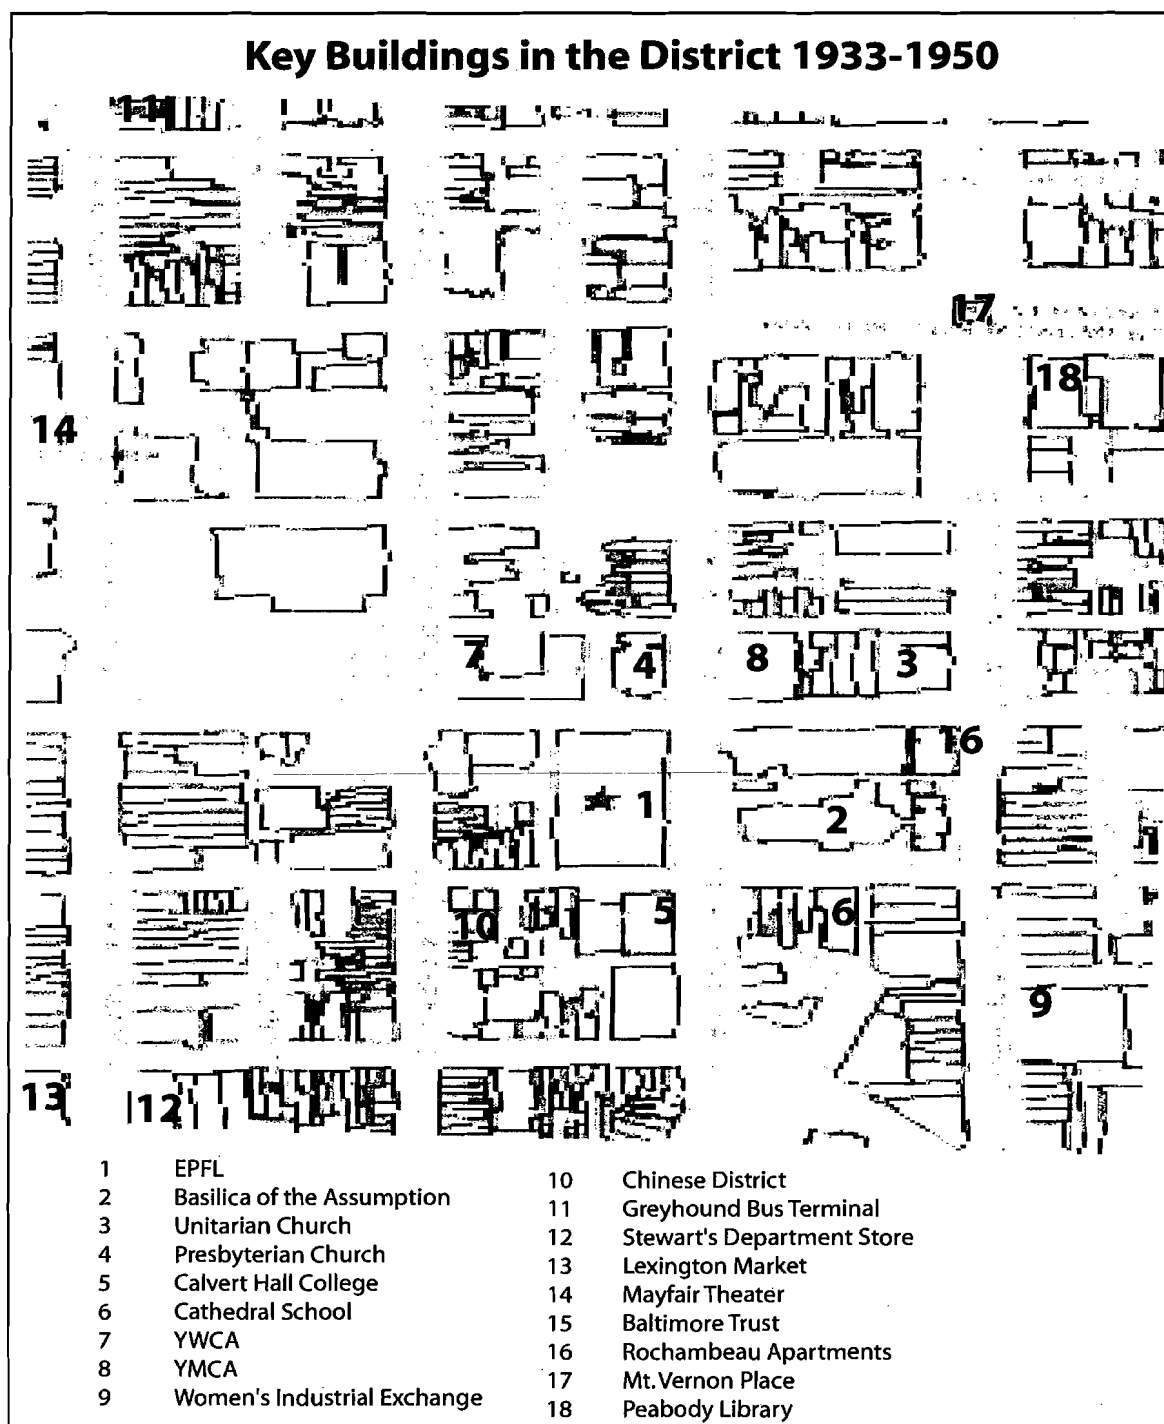 Key Buildings in the District 1933-1950
11
17
18
14
7
4
8
3
16
1
2
10
5
6
9
13
12
1 EPFL
2 Basilica of the Assumption
3 Unitarian Church
4 Presbyterian Church
5 Calvert Hall College
6 Cathedral School
7 YWCA
8 YMCA
9 Women's Industrial Exchange
10 Chinese District
11 Greyhound Bus Terminal
12 Stewart's Department Store
13 Lexington Market
14 Mayfair Theater
15 Baltimore Trust
16 Rochambeau Apartments
17 Mt. Vernon Place
18 Peabody Library